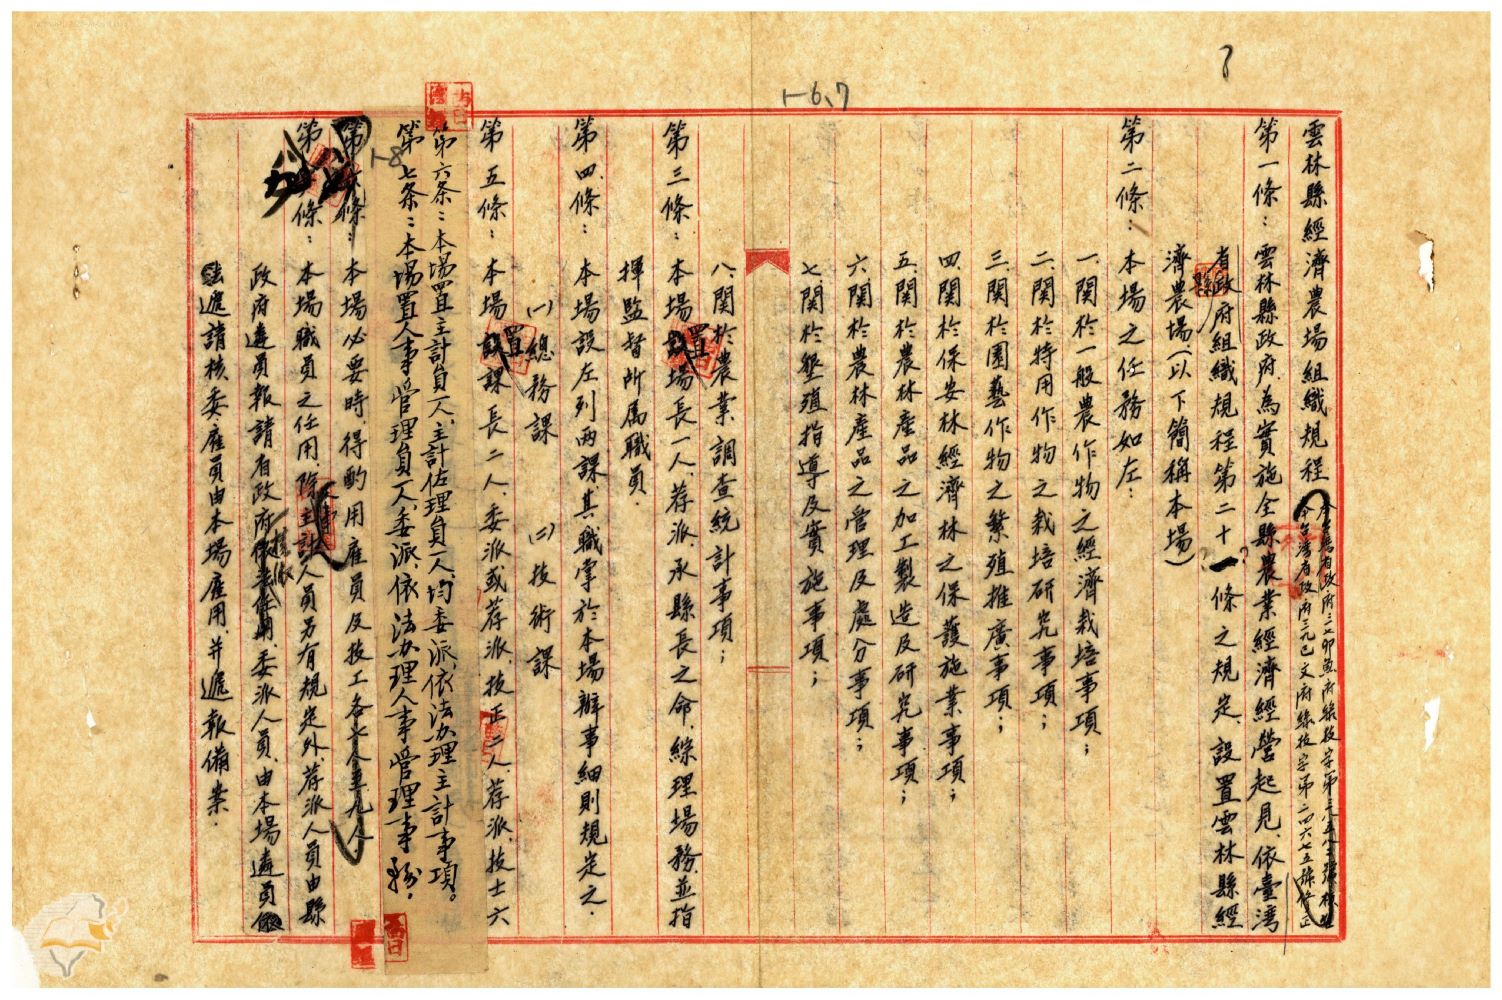 1-6、7
雲林縣經濟農場組織規程
第一條：雲林縣政府為實施全縣農業經濟經營起見、依臺灣
省政府組織規程第二十一條之規定、設置雲林縣經
縣
濟農場（以下簡稱本場）
第二條：本場之任務如左：
一、関於一般農作物之經濟栽培事項；
二、関於特用作物之栽培研究事項；
三、関於園藝作物之繁殖推廣事項；
四、関於保安林經濟林之保護施業事項；
五、関於農林產品之加工製造及研究事項；
六、関於農林產品之管理及處分事項；
七、関於墾殖指導及實施事項；
八、関於農業調查統計事項；
第三條：本場置場長一人、荐派、承縣長之命、綜理場務、並指
揮監督所屬職員．
第四條：本場設左列兩課其職掌於本場辦事細則規定之．
㈠總務課　㈡技術課
第五條：本場置課長二人、委派或荐派、技正二人、荐派、技士六
第六条：本場置主計員一人、主計佐理員一人、均委派、依法办理主計事項。
第七条：本場置人事管理員一人、委派、依法办理人事管理事務．
1-8
條：本場必要時、得酌用雇員及技工各
第 條：本場職員之任用、除主計人員另有規定外、荐派人員由縣
政府遴員報請省政府 委派人員、由本場遴員
遞請核委雇員由本場雇用、并遞報備案．